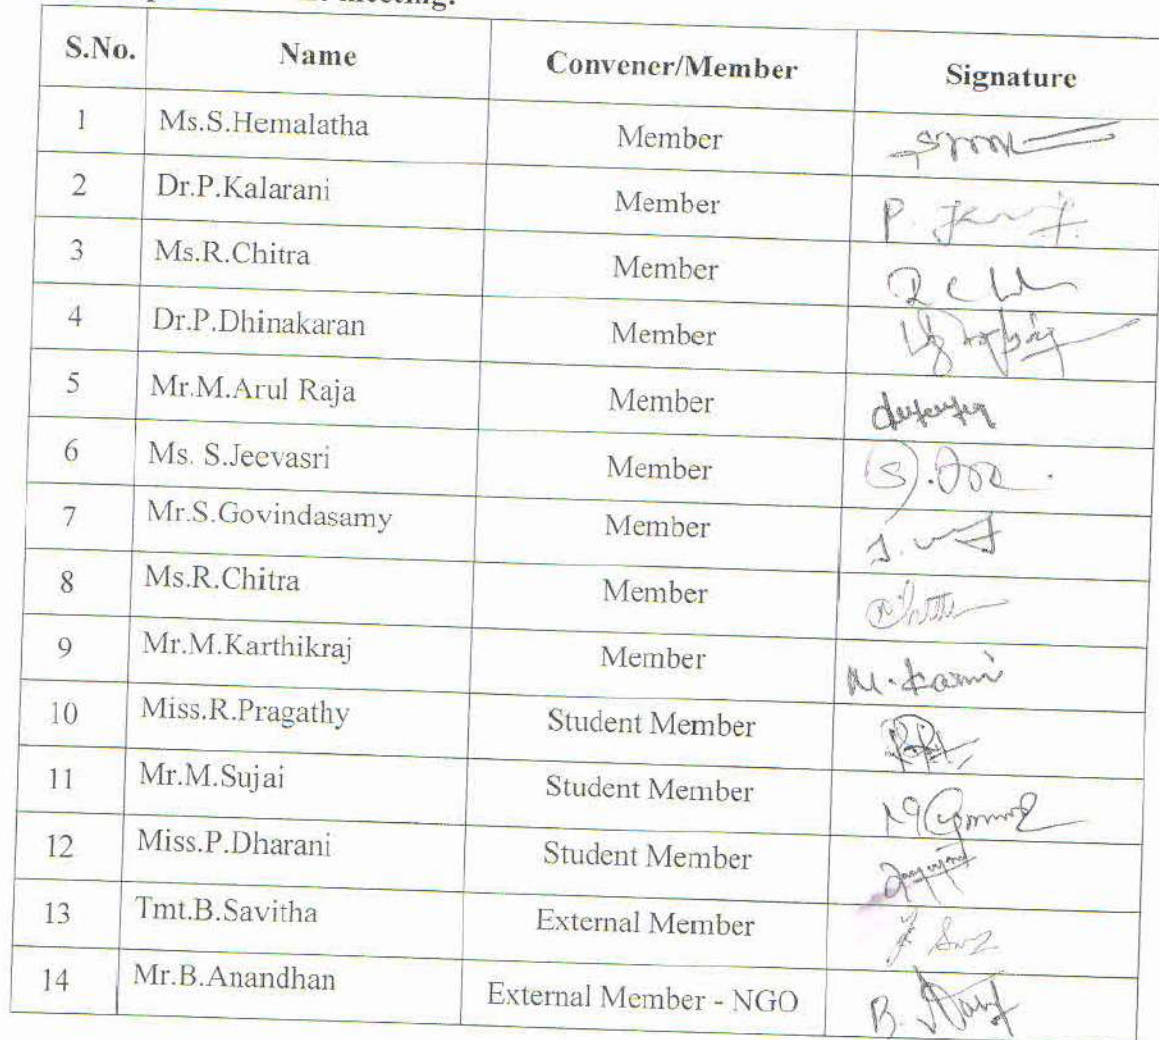 meeting.
S.No. Name Convener/Member Signature
1 Ms.S.Hemalatha Member
2 Dr.P.Kalarani Member P.
3 Ms.R.Chitra Member
4 Dr.P.Dhinakaran Member
5 Mr.M.Arul Raja Member
6 Ms. S.Jeevasri Member
7 Mr.S.Govindasamy Member
8 Ms.R.Chitra Member
9 Mr.M.Karthikraj Member M.
10 Miss.R.Pragathy Student Member
11 Mr.M.Sujai Student Member
12 Miss.P.Dharani Student Member
13 Tmt.B.Savitha External Member
14 Mr.B.Anandhan External Member - NGO B.